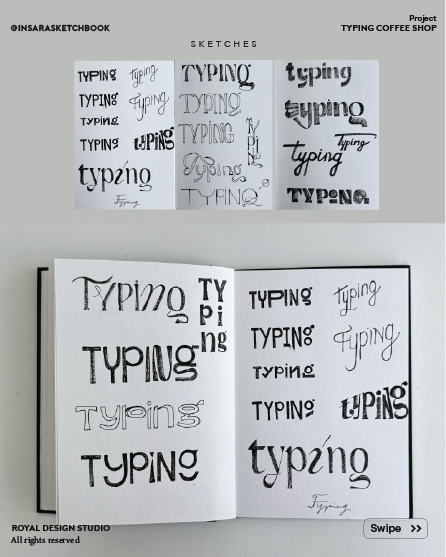 @INSARASKETCHBOOK
Project
TYPING COFFEE SHOP
SKETCHES
TYPING typing
TYPING Typing
TYPING
TYPING typing
typing
Typing
TYPING
TYPING
TYPING
Typing
TYPING
typing
typing
typing
Typing
typing
TYPING
Typing
TYPING
TYPING
TYPING
TYPING
Ty
pi
ng
TYPING typing
TYPING Typing
TYPING
TYPING typing
typing
Typing
ROYAL DESIGN STUDIO
All rights reserved
Swipe >>